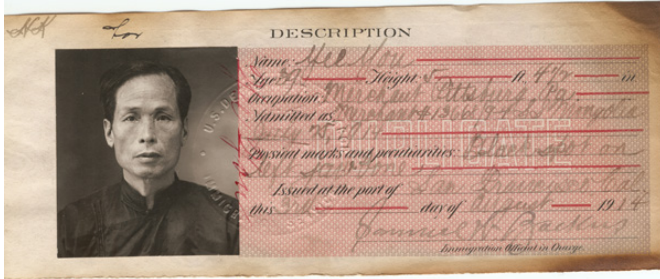 HK
DESCRIPTION
Name, Mee Mou
Age 39 Height, 5 ft. 4½ in.
Occupation, Merchant, Pa.
Admitted as Merchant Mongolia
1914
Physical marks and peculiarities Black spot on
left jaw bone
Issued at the port of San Francisco Cal
this 3rd day of August 1914
Samuel W. Backus
Immigration Official in Charge.